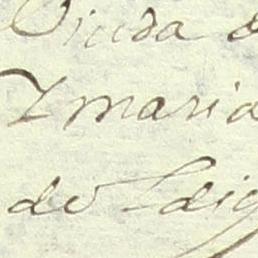 Viuda d
Y maria
de Ldig